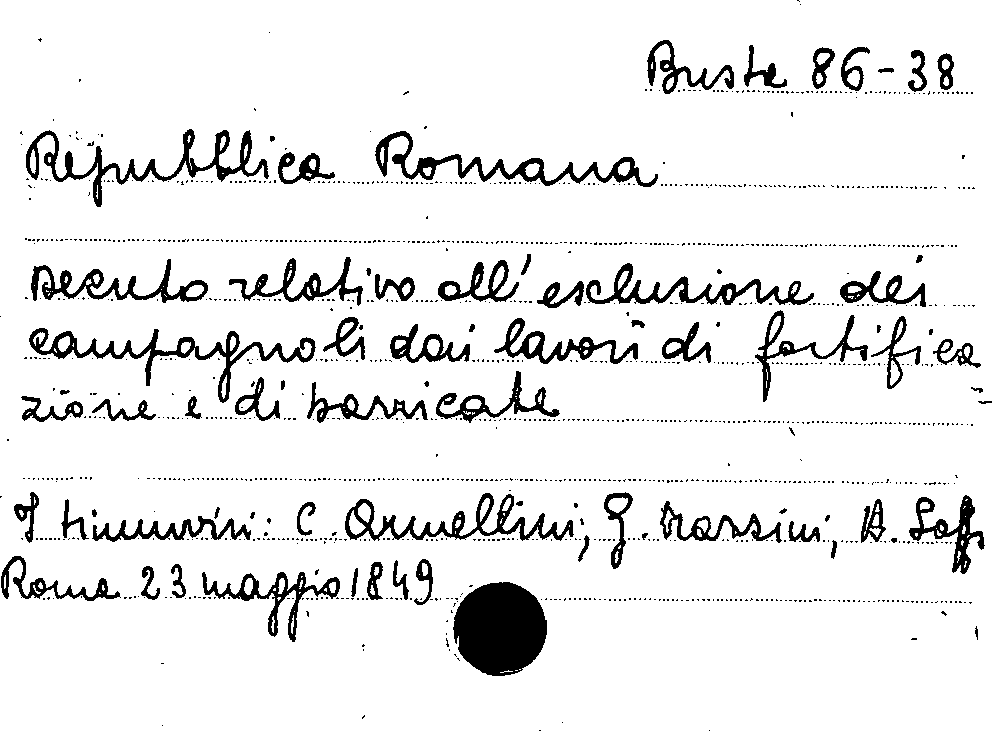 Busta 86-38
Repubblica Romana
Decreto relativo all'esclusione dei
campagnoli dai lavori di fortifica
zione e di barricate
I triumviri: C. Armellini, G. Mazzini, A. Saffi
Roma 23 maggio 1849